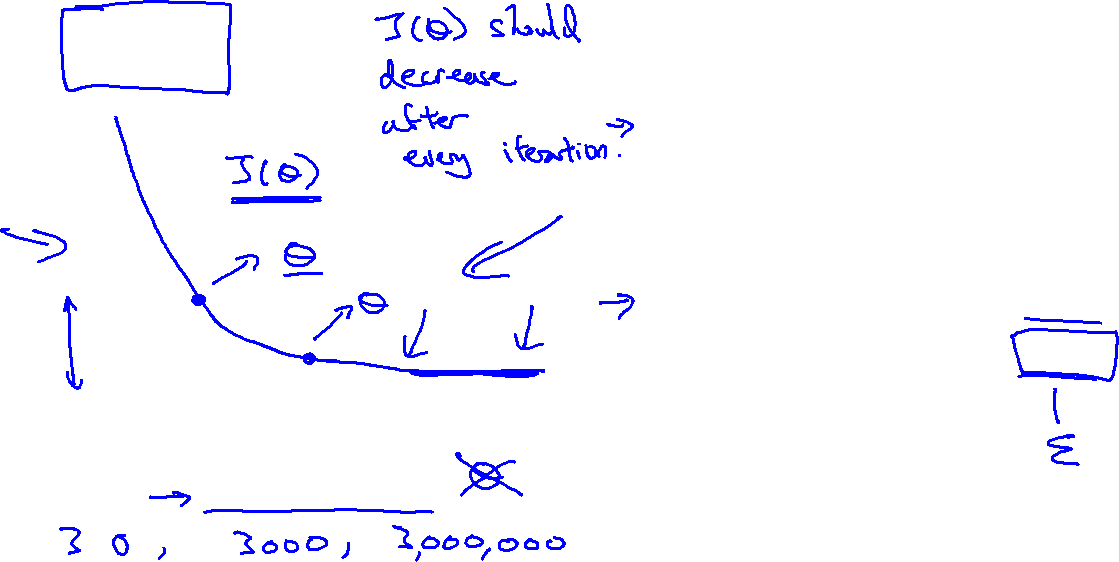 J(θ) should
decrease
after
every iteration.
J(θ)
θ
θ
θ
30, 3000, 3,000,000
ε